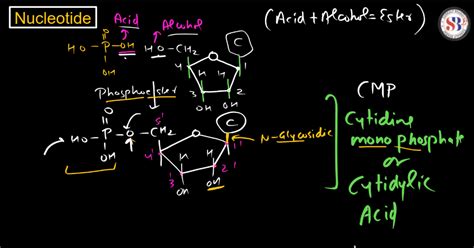 Nucleotide
Acid
Alcohol
(Acid + Alcohol = Ester)
SB
O
HO-P-OH
HO-CH₂
C
OH
O
H H
4 1
3 2
OH OH
Phosphoester
CMP
O
5'
HO-P-O-CH₂
C
N-Glycosidic
OH
O
4' H H 1'
3' 2'
OH OH
Cytidine
monophosphate
or
Cytidylic
Acid